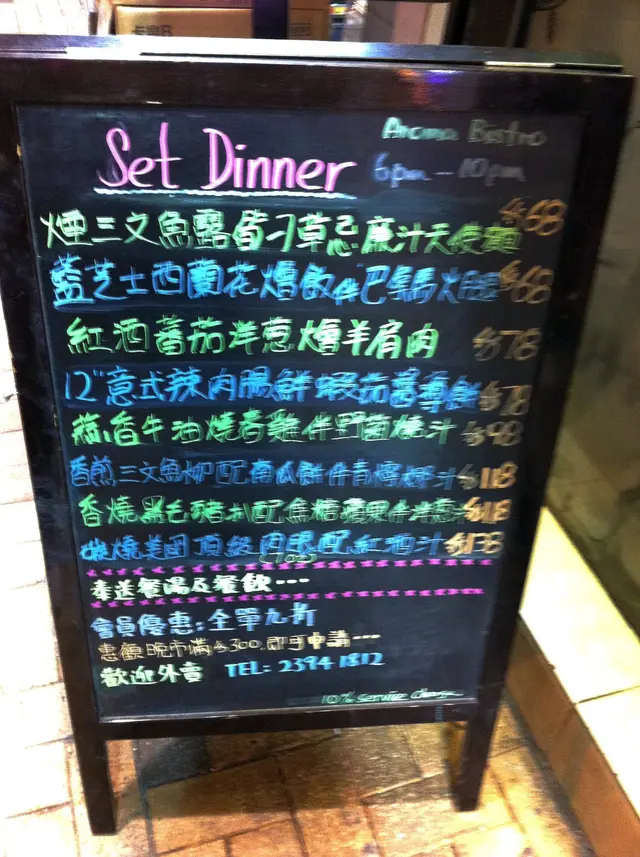 Set Dinner
Aroma Bistro
6pm - 10pm
煙三文魚露荀刁草忌廉汁天使麵 $68
藍芝士西蘭花燴飯伴巴馬火腿 $68
紅酒蕃茄洋蔥燴羊肩肉 $78
12"意式辣肉腸鮮蝦茄醬薄餅 $78
蒜香牛油燒春雞伴野菌燒汁 $98
香煎三文魚扒配南瓜餅伴青檸汁 $118
香燒黑毛豬扒配焦糖蘋果伴洋蔥汁 $118
燒美國頂級肉眼配紅酒汁 $138
(10oz)
奉送餐湯及餐飲...
會員優惠:全單九折
惠顧晚市滿$300,即可申請...
歡迎外賣 TEL: 2394 1812
10% service charge